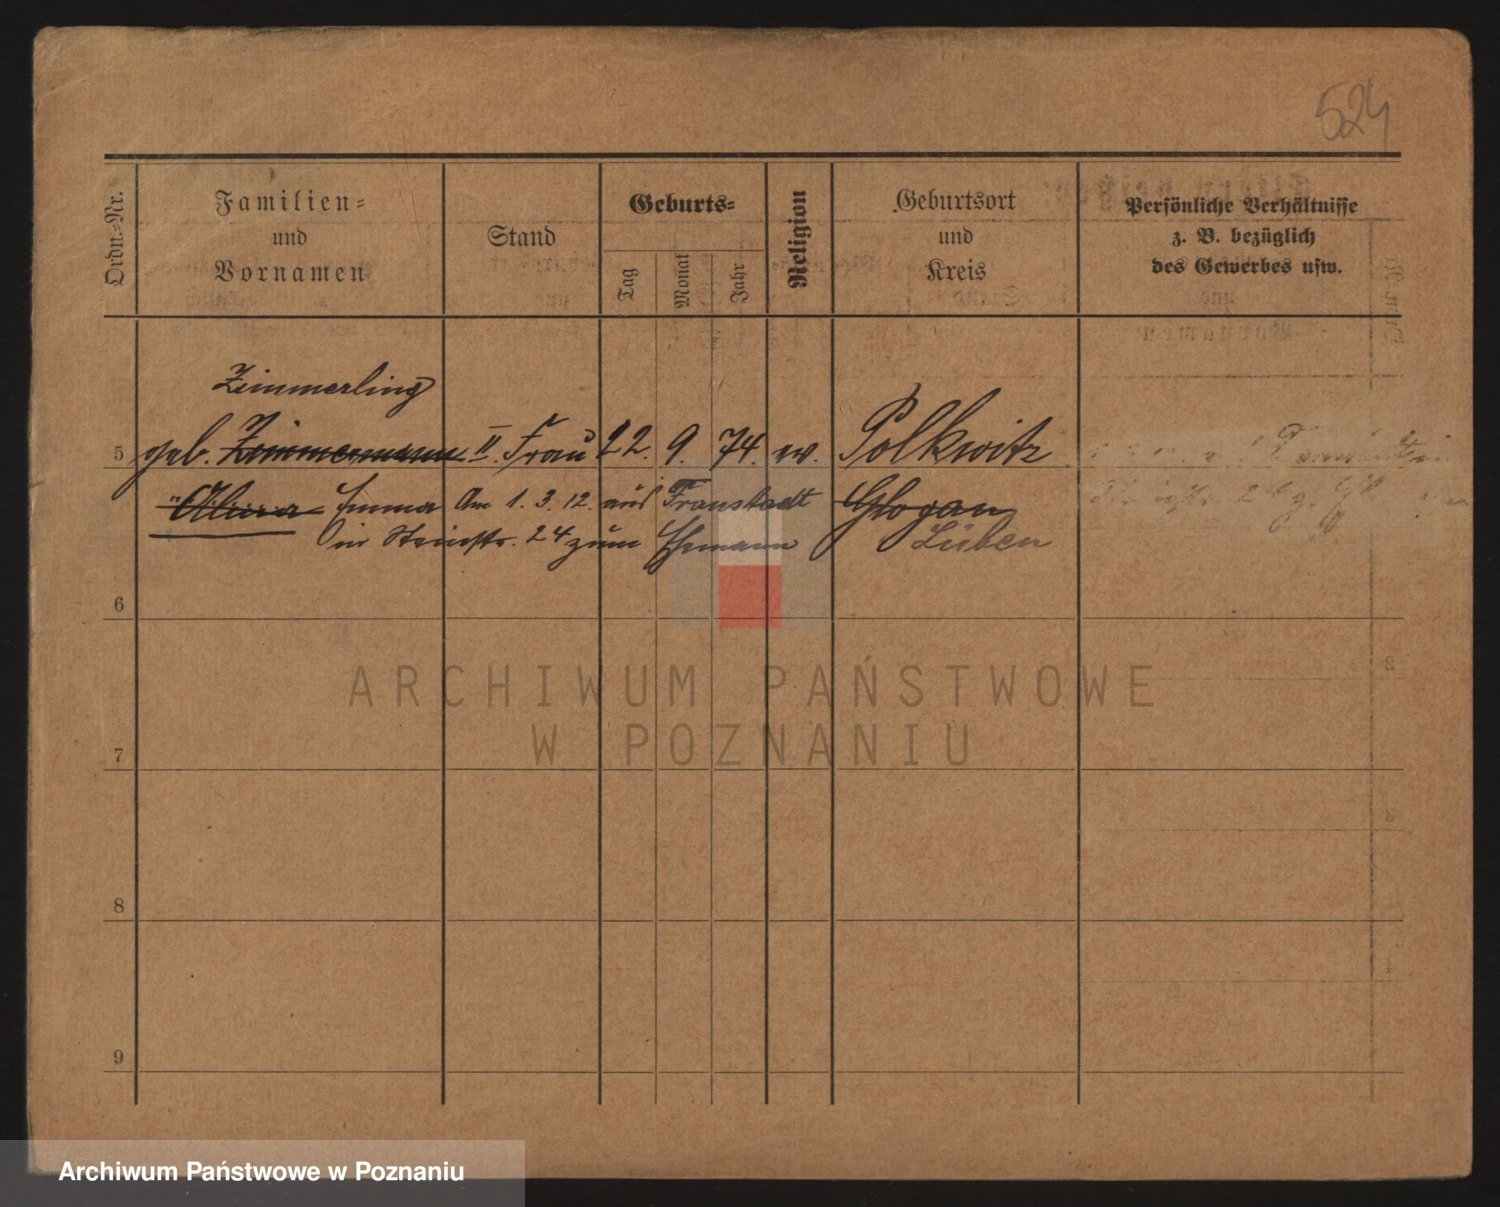 524
Ordn.-Nr.
Familien-
und
Vornamen
Stand
Geburts-
Tag
Monat
Jahr
Religion
Geburtsort
und
Kreis
Persönliche Verhältnisse
z. B. bezüglich
des Gewerbes usw.
Zimmerling
5 geb. Zimmermann II. Frau 22. 9. 74. ev. Polkwitz
Emma Am 1. 3. 12. aus Fraustadt Glogau
in Steinstr. 24 zum Ehemann Lüben
6
7
8
9
ARCHIWUM PAŃSTWOWE
W POZNANIU
Archiwum Państwowe w Poznaniu